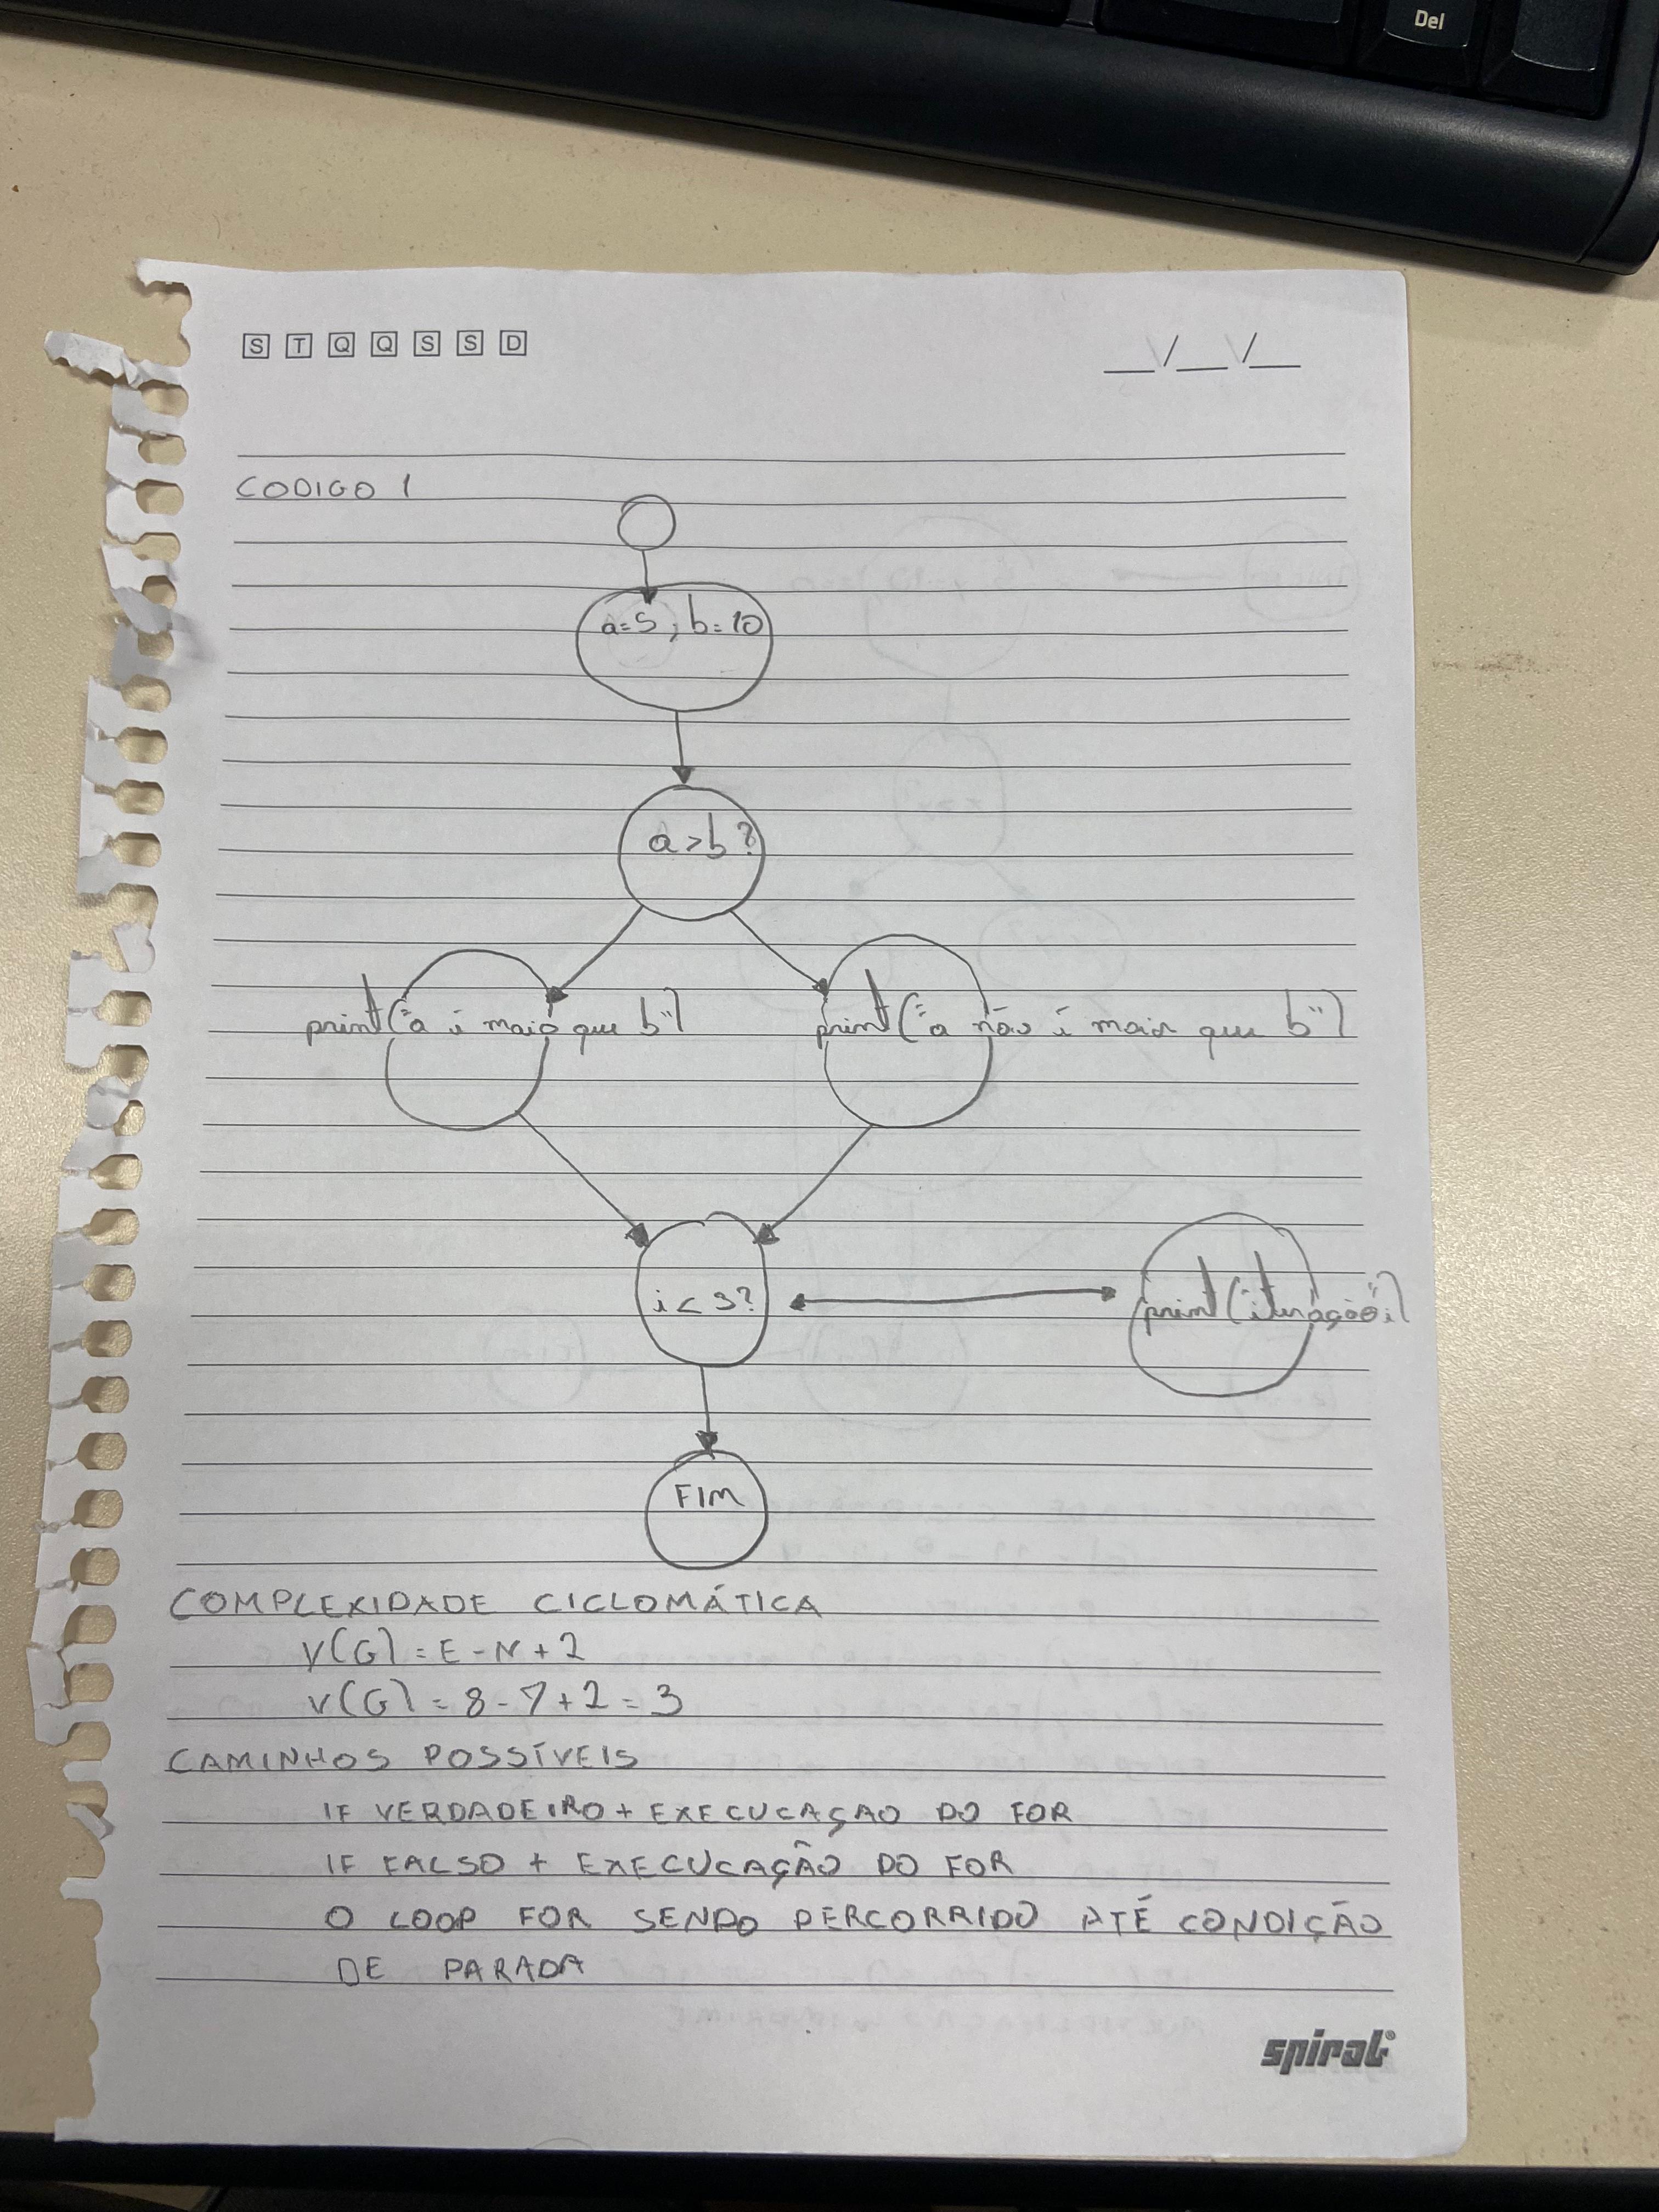 Del
S T Q Q S S D
__/__/__
CODIGO 1
a=5; b=10
a>b?
print("a é maio que b")
print("a não é maior que b")
i<3?
print("iteração", i)
FIM
COMPLEXIDADE CICLOMÁTICA
V(G) = E - N + 2
V(G) = 8 - 7 + 2 = 3
CAMINHOS POSSÍVEIS
IF VERDADEIRO + EXECUCAÇAO DO FOR
IF FALSO + EXECUCAÇÃO DO FOR
O LOOP FOR SENDO PERCORRIDO ATÉ CONDIÇÃO
DE PARADA
spiral®